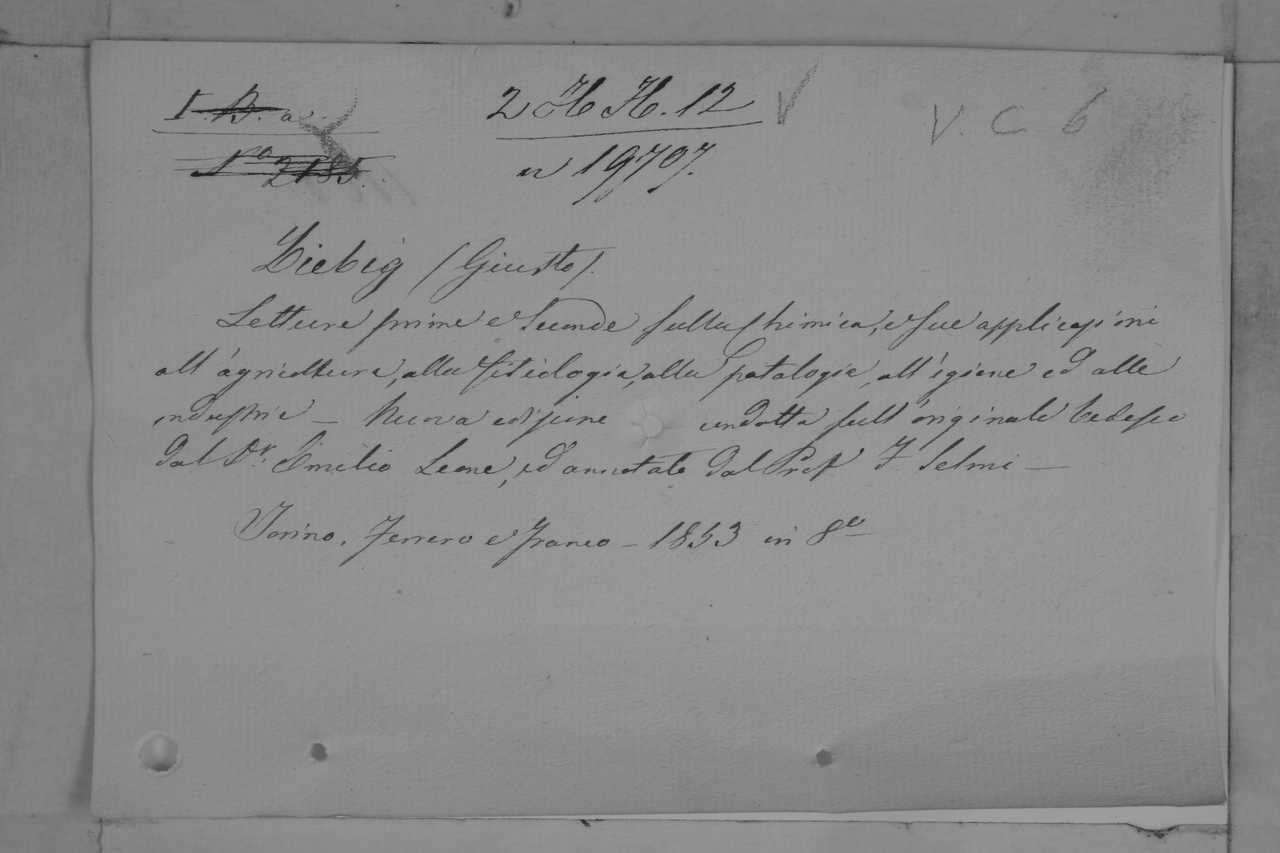 I. B. a. 2 H H. 12 V V. C. 6
N.º 2185. n 19707.
Liebig (Giusto).
Letture prime e seconde sulla chimica, e sue applicazioni
all'agricoltura, alla fisiologia, alla patologia, all'igiene ed alle
industrie — Nuova edizione condotta sull'originale tedesco
dal Dr. Emilio Leone, ed annotate dal Prof F. Selmi —
Torino, Ferrero e Franco — 1853 in 8º